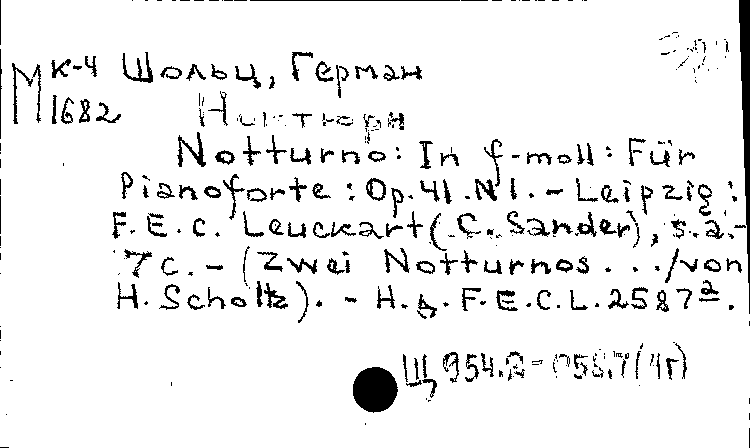 М к-4 Шольц, Герман
1682 Ноктюрн
Notturno: In f-moll: Für
Pianoforte: Op. 41. N 1. - Leipzig:
F. E. C. Leuckart (C. Sander), s. a. -
7 с. - (Zwei Notturnos . . . / von
H. Scholtz). - Н. д. F. E. C. L. 2587ª.
Щ 954.2-058.7(4г)